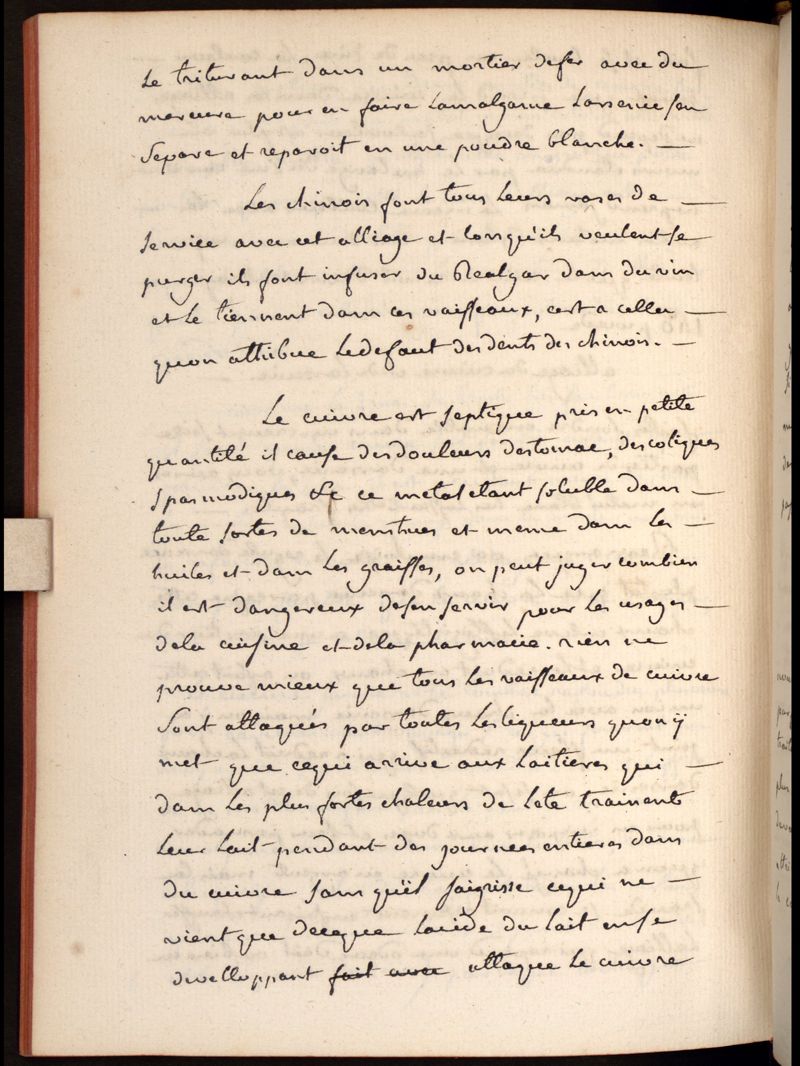 Le triturant dans un mortier defer avec du
mercure pour en faire Lamalgame Larsenic sen
Separe et reparoit en une poudre blanche. —
Les chinois font tous Leurs vases de —
Service avec cet alliage et lorsqu'ils veulent se
purger ils font infuser du Realgar dans du vin
et Le tiennent dans ces vaisseaux, cest a cella —
quon attribue Ledefaut des dents des chinois. —
Le cuivre est septique pris en petite
quantité il cause des douleurs destomac, des coliques
spasmodiques &c ce metal etant soluble dans —
toute sortes de menstrues et meme dans Les —
huiles et dans Les graisses, on peut juger combien
il est dangereux desen servir pour Les usages —
dela cuisine et dela pharmacie. rien ne
prouve mieux que tous Les vaisseaux de cuivre
Sont attaqués par toutes Les liqueurs quon ÿ
met que cequi arrive aux Laitieres qui —
dans Les plus fortes chaleurs de Lété trainent
Leur Lait pendant des journees entieres dans
du cuivre sans qu'il saigrisse cequi ne —
vient que deceque Lacide du Lait ense
dvelloppant fait avec attaque Le cuivre